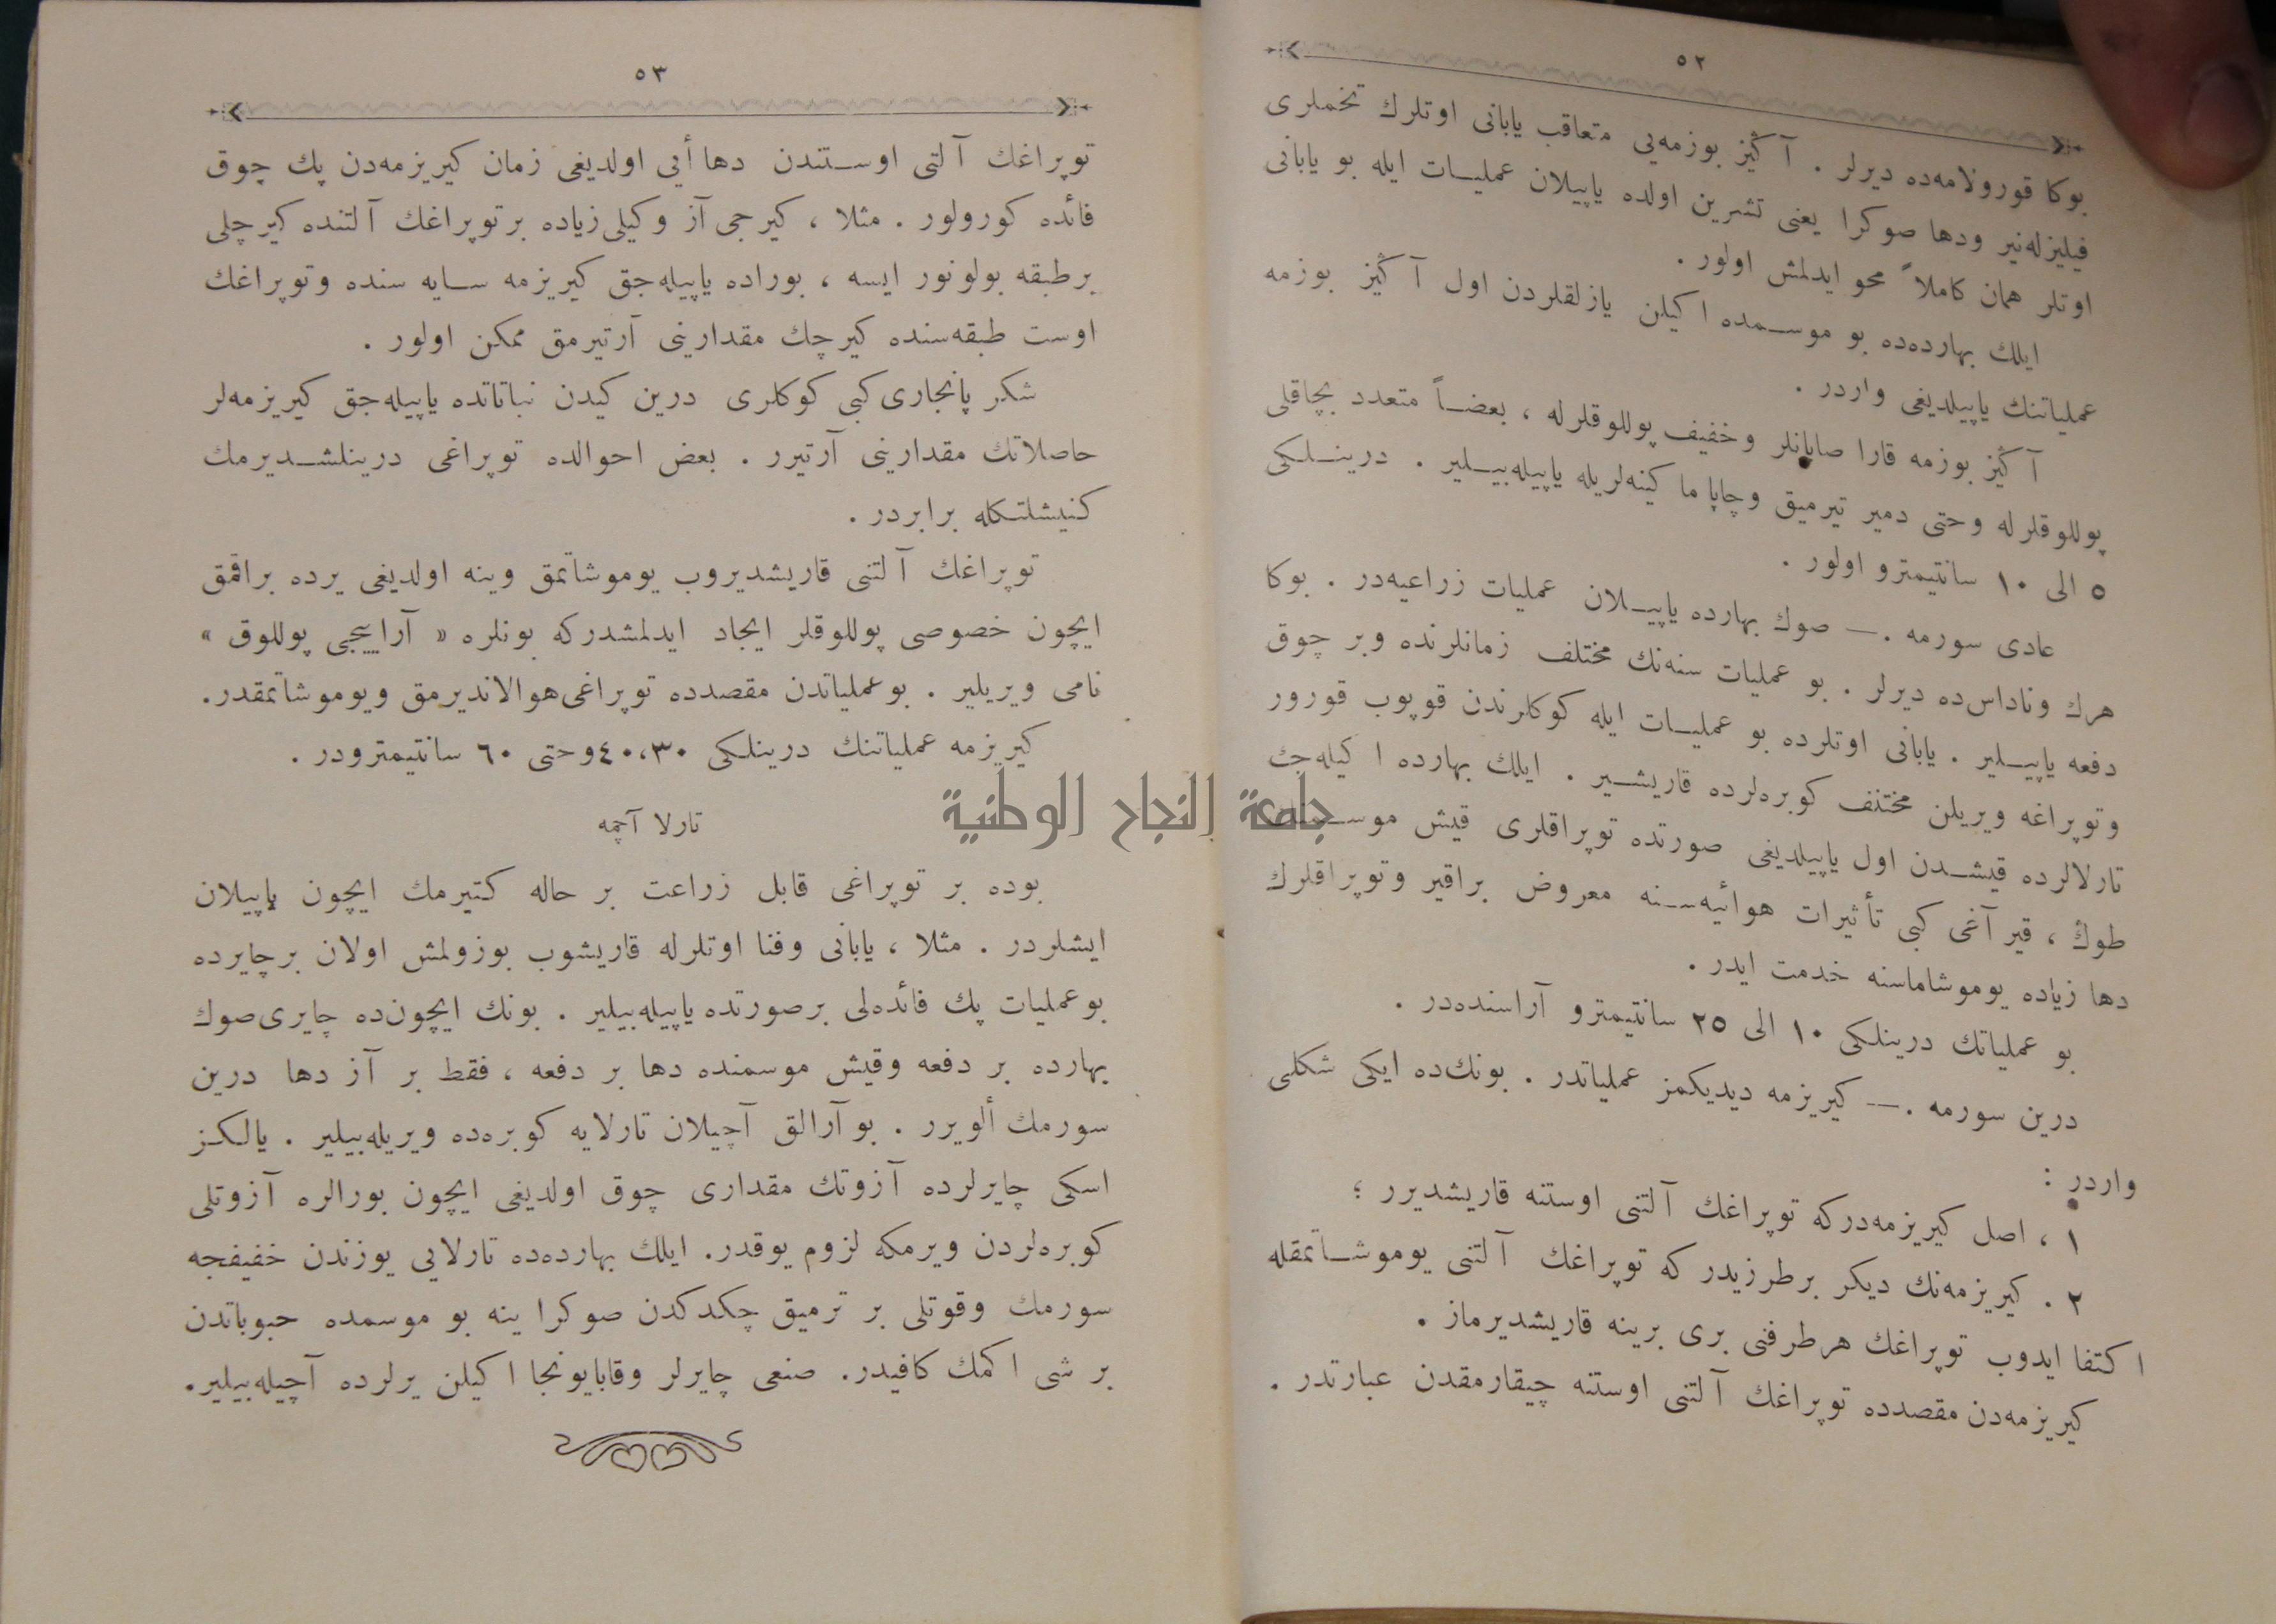 ٥٢
بوكا قورولامه‌ده ديرلر . آ كيز بوزمه‌يى متعاقب يابانى اوتلرك تخملرى
فيليزله‌نير ودها صوكرا يعنى تشرين اولده ياپيلان عمليـات ايله بو يابانى
اوتلر همان كاملاً محو ايدلمش اولور .
ايلك بهارده‌ده بو موسـمده ا كيلن يازلقلردن اول آ كيز بوزمه
عملياتنك ياپيلديغى واردر .
آ كيز بوزمه قارا صاپانلر وخفيف پوللوقلرله ، بعضـاً متعدد بچاقلى
پوللوقلرله وحتى دمير تيرميق وچاپا ما كينه‌لريله ياپيله‌بيـلير . درينـلكى
٥ الى ١٠ سانتيمترو اولور .
عادى سورمه .— صوك بهارده ياپيـلان عمليات زراعيه‌در . بوكا
هرك وناداس‌ده ديرلر . بو عمليات سنه‌نك مختلف زمانلرنده وبر چوق
دفعه ياپيـلير . يابانى اوتلرده بو عمليـات ايله كوكلرندن قوپوب قورور
وتوپراغه ويريلن مختلف كوبره‌لرده قاريشـير . ايلك بهارده ا كيله‌جك
تارلالرده قيشـدن اول ياپيلديغى صورتده توپراقلرى قيش موسـمنك
طوك ، قير آغى كبى تأثيرات هوائيه‌سـنه معروض براقير وتوپراقلرك
دها زياده يوموشاماسنه خدمت ايدر .
بو عملياتك درينلكى ١٠ الى ٢٥ سانتيمترو آراسنده‌در .
درين سورمه .— كيريزمه ديديكمز عملياتدر . بونك‌ده ايكى شكلى
واردر :
١ ، اصل كيريزمه‌دركه توپراغك آلتنى اوستنه قاريشديرر ؛
٢ . كيريزمه‌نك ديكر برطرزيدر كه توپراغك آلتنى يوموشـاتمقله
ا كتفا ايدوب توپراغك هرطرفنى برى برينه قاريشديرماز .
كيريزمه‌دن مقصدده توپراغك آلتنى اوستنه چيقارمقدن عبارتدر .
٥٣
توپراغك آلتى اوسـتندن دها أيى اولديغى زمان كيريزمه‌دن پك چوق
فائده كورولور . مثلا ، كيرجى آز وكيلى زياده برتوپراغك آلتنده كيرچلى
برطبقه بولونور ايسه ، بوراده ياپيله‌جق كيريزمه سـايه سنده وتوپراغك
اوست طبقه‌سنده كيرچك مقدارينى آرتيرمق ممكن اولور .
شكر پانجارى كبى كوكلرى درين كيدن نباتاتده ياپيله‌جق كيريزمه‌لر
حاصلاتك مقدارينى آرتيرر . بعض احوالده توپراغى درينلشـديرمك
كنيشلتمكله برابردر .
توپراغك آلتنى قاريشديروب يوموشاتمق وينه اولديغى يرده براقمق
ايچون خصوصى پوللوقلر ايجاد ايدلمشدركه بونلره « آراييجى پوللوق »
نامى ويريلير . بوعملياتدن مقصدده توپراغى هوالانديرمق ويوموشاتمقدر.
كيريزمه عملياتنك درينلكى ٤٠،٣٠وحتى ٦٠ سانتيمترودر .
تارلا آچمه
بوده بر توپراغى قابل زراعت بر حاله كتيرمك ايچون ياپيلان
ايشلردر . مثلا ، يابانى وفنا اوتلرله قاريشوب بوزولمش اولان برچايرده
بوعمليات پك فائده‌لى برصورتده ياپيله‌بيلير . بونك ايچون‌ده چايرى صوك
بهارده بر دفعه وقيش موسمنده دها بر دفعه ، فقط بر آز دها درين
سورمك ألويرر . بو آرالق آچيلان تارلايه كوبره‌ده ويريله‌بيلير . يالكز
اسكى چايرلرده آزوتك مقدارى چوق اولديغى ايچون بورالره آزوتلى
كوبره‌لردن ويرمكه لزوم يوقدر. ايلك بهارده‌ده تارلايى يوزندن خفيفجه
سورمك وقوتلى بر ترميق چكدكدن صوكرا ينه بو موسمده حبوباتدن
بر شى ا كمك كافيدر. صنعى چايرلر وقابايونجا ا كيلن يرلرده آچيله‌بيلير.
جامعة النجاح الوطنية